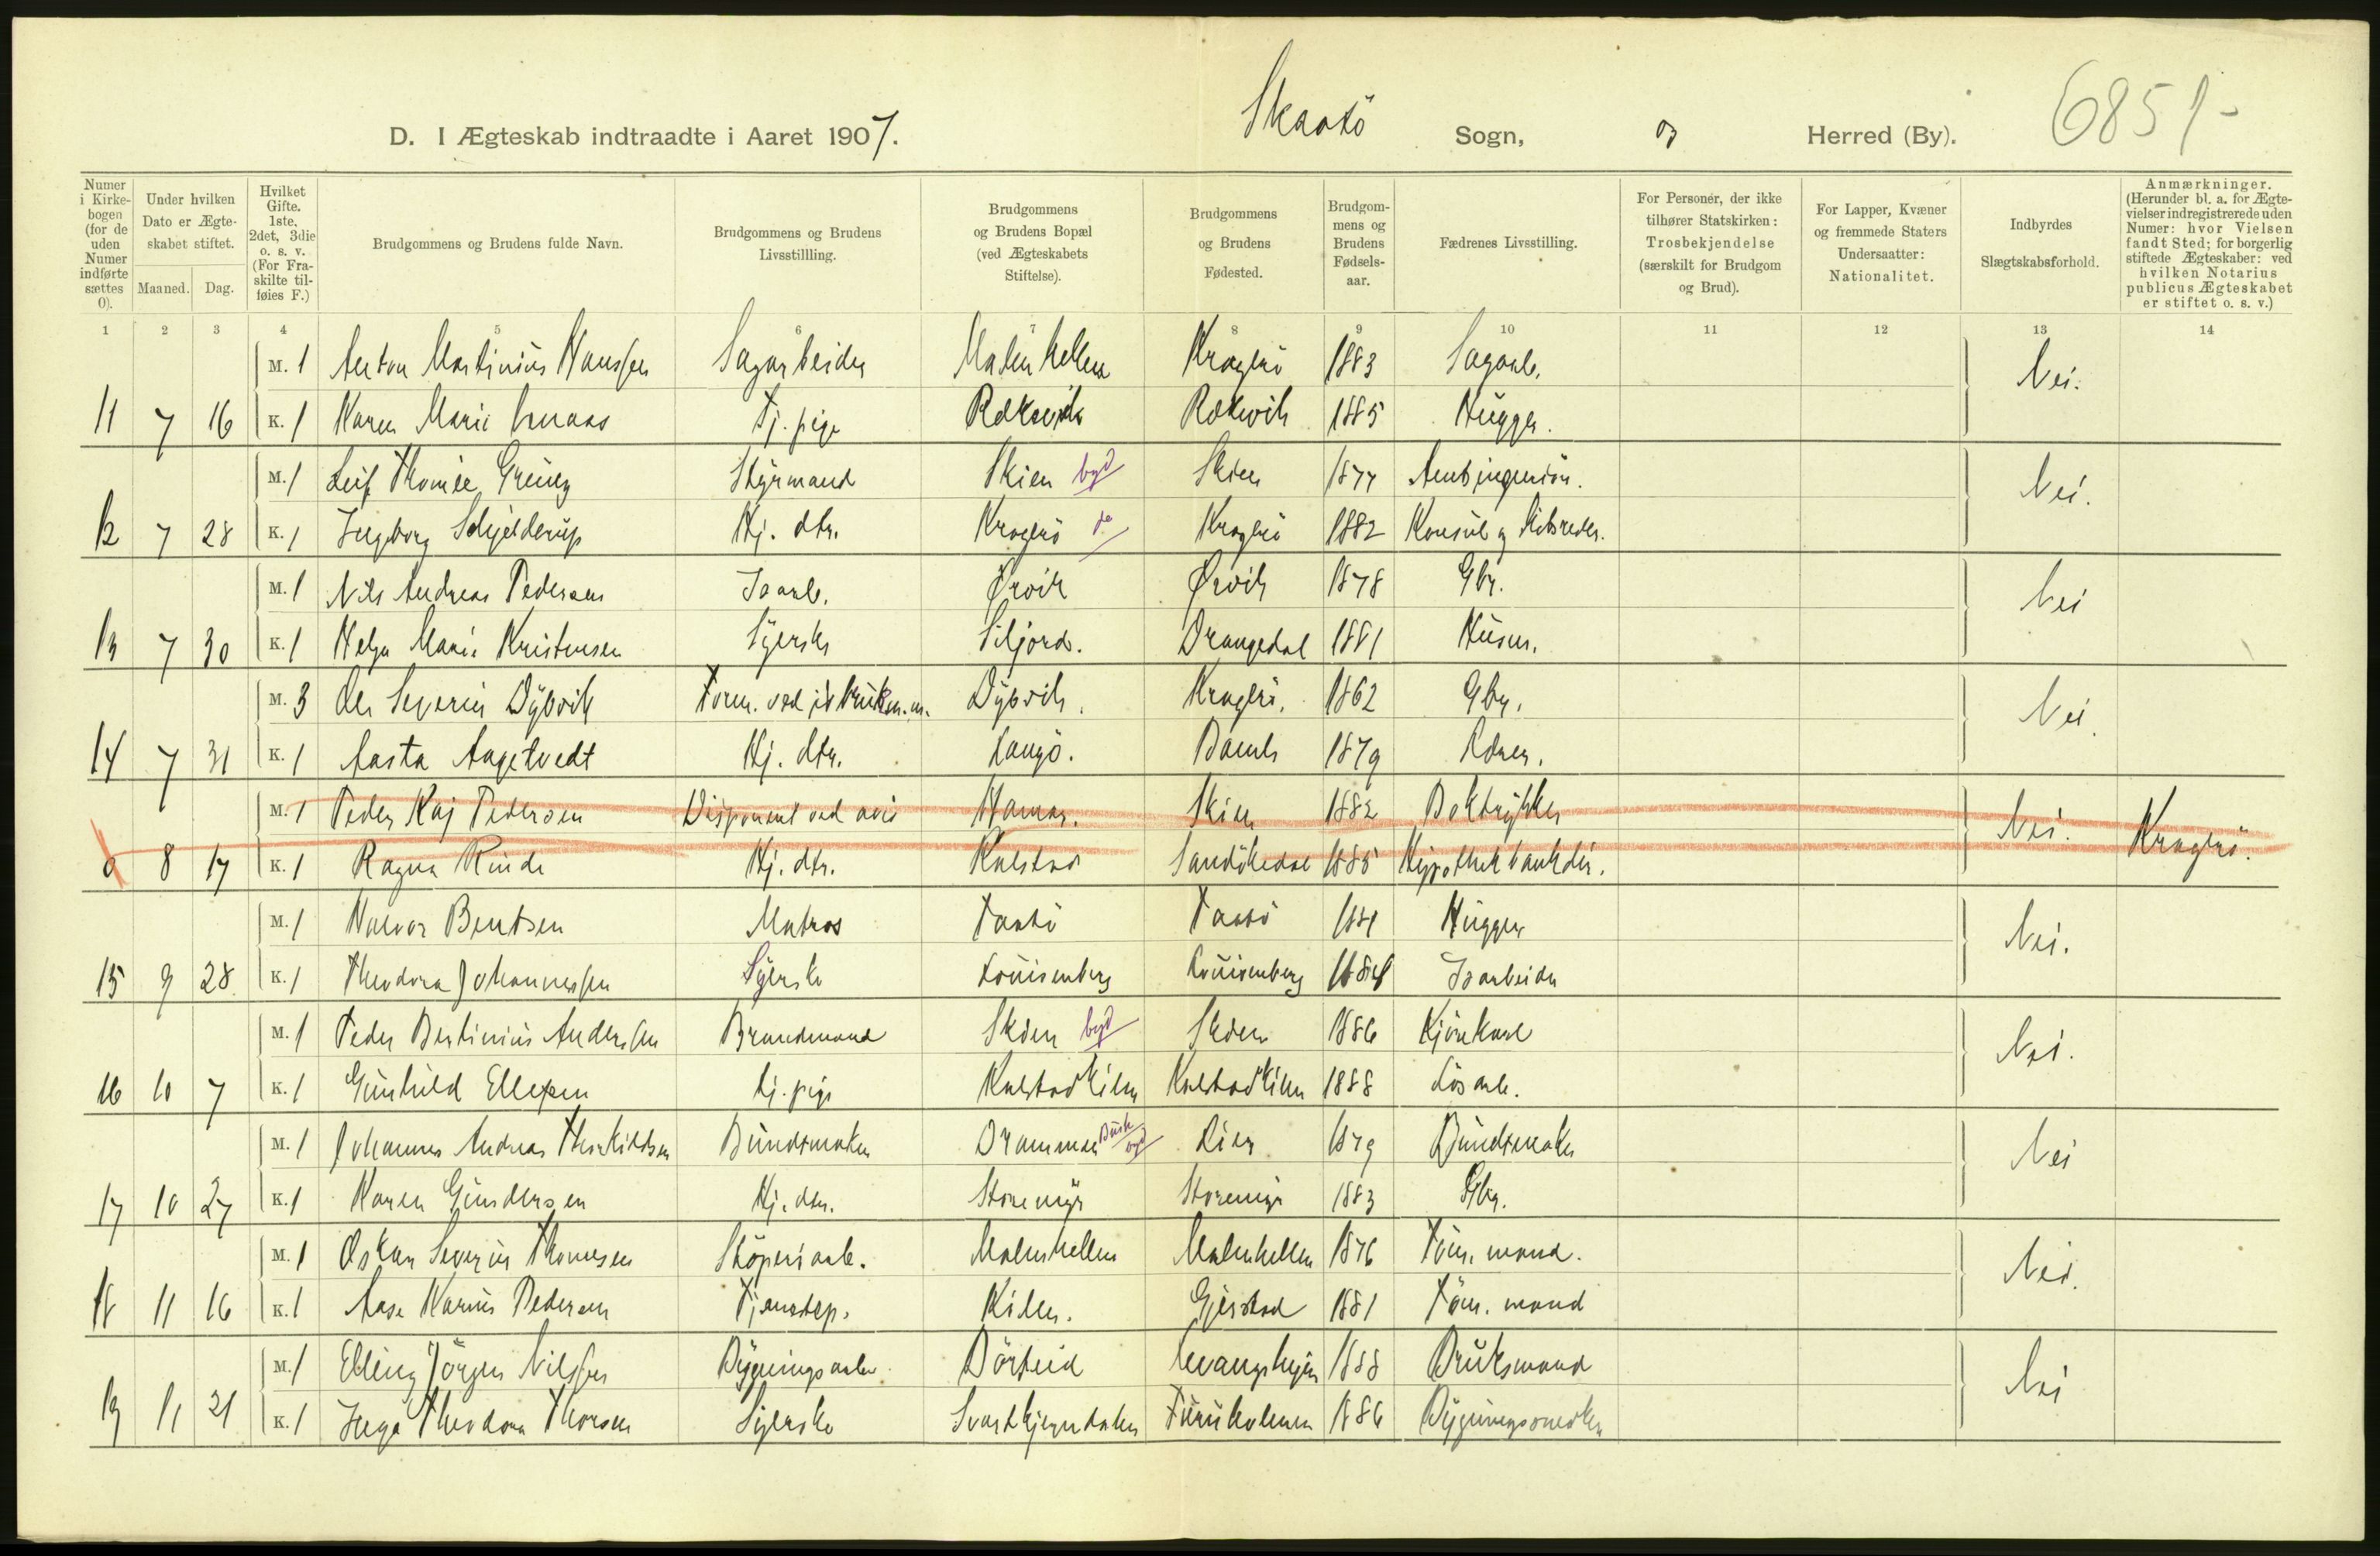 Skaatö
6851-
D. I Ægteskab indtraadte i Aaret 1907. Sogn, og Herred (By).
Numer i Kirkebogen (for de uden Numer indførte sættes 0).
Under hvilken Dato er Ægteskabet stiftet.
Maaned. Dag.
Hvilket Gifte. 1ste, 2det, 3die o. s. v. (For Fraskilte tilføies F.)
Brudgommens og Brudens fulde Navn.
Brudgommens og Brudens Livsstillling.
Brudgommens og Brudens Bopæl (ved Ægteskabets Stiftelse).
Brudgommens og Brudens Fødested.
Brudgommens og Brudens Fødselsaar.
Fædrenes Livsstilling.
For Personer, der ikke tilhører Statskirken: Trosbekjendelse (særskilt for Brudgom og Brud).
For Lapper, Kvæner og fremmede Staters Undersaatter: Nationalitet.
Indbyrdes Slægtskabsforhold.
Anmærkninger. (Herunder bl. a. for Ægtevielser indregistrerede uden Numer: hvor Vielsen fandt Sted; for borgerlig stiftede Ægteskaber: ved hvilken Notarius publicus Ægteskabet er stiftet o. s. v.)
1 2 3 4 5 6 7 8 9 10 11 12 13 14
M. 1 Anton Martinius Hanssen Sagarbeider Malmhellen Kragerö 1883 Sagarb. Nei.
11 7 16 K. 1 Karen Marie Tj. pige Rekevik Rekevik 1885 Hugger.
M. 1 Leif Thomée Greüng Styrmand Skien byd Skien 1877 Amtsingeniör. Nei.
12 7 28 K. 1 Ingeborg Schjelderup Hj. dtr. Kragerö do Kragerö 1882 Konsul og Skibsreder.
M. 1 Nils Andreas Pedersen Isarb. Ørvik Ørvik 1878 Gbr. Nei
13 7 30 K. 1 Helga Marie Kristensen Syerske Siljord. Drangedal 1881 Husm.
M. 3 Ole Severin Dybvik Form. ved Dybvik. Kragerö. 1862 Gbr. Nei.
14 7 31 K. 1 Aasta Aagetvedt Hj. dtr. Langö. Bamle 1879
M. 1 Peder Kaj Pedersen Disponent ved avis Hamar. Skien 1882 Boktrykker Nei. Kragerö.
0 8 17 K. 1 Ragna Rinde Hj. dtr. Kalstad Sandökedal 1885 Hypothekbankdir.
M. 1 Halvor Bentsen Matros Taatö Taatö 1881 Hugger Nei.
15 9 28 K. 1 Theodora Johannessen Syerske Louisenberg Louisenberg 1884 Isarbeider
M. 1 Peder Bertinius Anderssen Brandmand Skien byd Skien 1886 Kjörekarl Nei.
16 10 7 K. 1 Gunhild Ellefsen tj. pige Kalstadkilen Kalstadkilen 1888 Lösarb.
M. 1 Johannes Andreas Thorkildsen Bundtmaker Drammen Busk byd Lier 1879 Bundtmaker Nei
17 10 27 K. 1 Karen Gundersen Hj. dtr. Storemyr Storemyr 1883 Gbr.
M. 1 Oskar Severin Thomesen Stöperiarb. Malmhellen Malmhellen 1876 Töm. mand. Nei.
18 11 16 K. 1 Aase Karine Pedersen Tjenstep. Kilen. Gjerstad 1881 Töm. mand
M. 1 Elling Jörgen Nilssen Bygningsarb. Dörteid 1888 Bruksmand Nei
19 11 21 K. 1 Inga Theodora Thorsen Syerske Svartkjerndalen Furuholmen 1886 Bygningssnedker